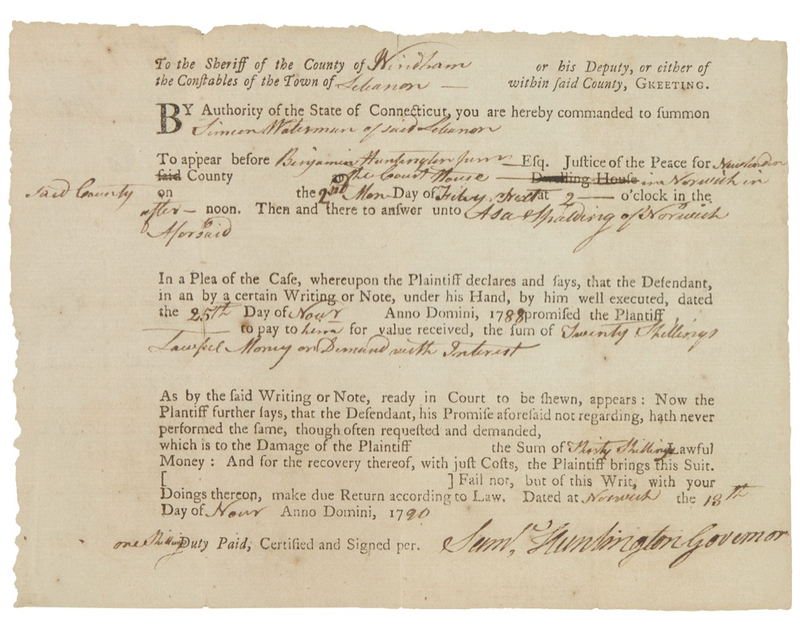 To the Sheriff of the County of Windham or his Deputy, or either of
the Conſtables of the Town of Lebanon — within ſaid County, GREETING.
BY Authority of the State of Connecticut, you are hereby commanded to ſummon
Simeon Waterman of said Lebanon
To appear before Benjamin Huntington junr — Esq. Juſtice of the Peace for New london
ſaid County at the Court House Dwelling Houſe in Norwich in
said County on the 2nd Mon Day of Feby. Next at 2 — o'clock in the
after — noon. Then and there to anſwer unto Asa Spalding of Norwich
Aforsaid
In a Plea of the Caſe, whereupon the Plaintiff declares and ſays, that the Defendant,
in an by a certain Writing or Note, under his Hand, by him well executed, dated
the 25th Day of Novr Anno Domini, 1788 promiſed the Plaintiff
to pay to him for value received, the ſum of Twenty Shillings
Lawful Money on Demand with Interest
As by the ſaid Writing or Note, ready in Court to be ſhewn, appears: Now the
Plaintiff further ſays, that the Defendant, his Promiſe aforeſaid not regarding, hath never
performed the ſame, though often requeſted and demanded,
which is to the Damage of the Plaintiff the Sum of Thirty Shillings Lawful
Money: And for the recovery thereof, with juſt Coſts, the Plaintiff brings this Suit.
[ ] Fail not, but of this Writ, with your
Doings thereon, make due Return according to Law. Dated at Norwich the 18th
Day of Novr Anno Domini, 1790
one Shilling Duty Paid, Certified and Signed per. Saml. Huntington Governor